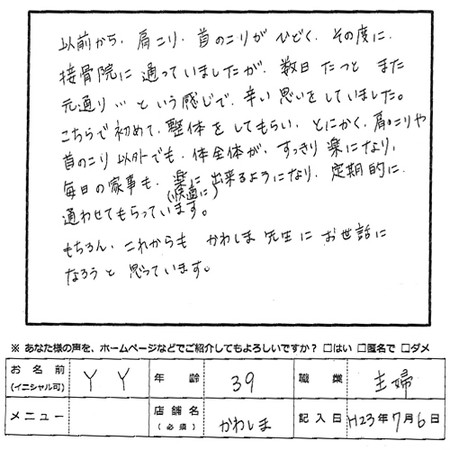 以前から、肩こり、首のこりがひどく、その度に、
接骨院に通っていましたが、数日たつとまた
元通り…という感じで、辛い思いをしていました。
こちらで初めて、整体をしてもらい、とにかく、肩のこりや
首のこり以外でも、体全体が、すっきり楽になり、
毎日の家事も、楽に(快適に)出来るようになり、定期的に、
通わせてもらっています。
もちろん、これからも かわしま先生に お世話に
なろうと思っています。
※ あなた様の声を、ホームページなどでご紹介してもよろしいですか？ □はい □匿名で □ダメ
お名前(イニシャル可) YY 年齢 39 職業 主婦
メニュー 店舗名(必須) かわしま 記入日 H23年7月6日